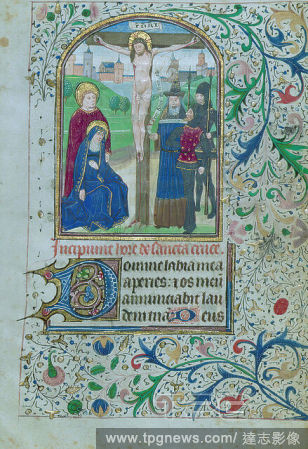 Incipiunt hore de sancta cruce
Domine labia mea
aperies: et os meū
annunciabit lau
dem tuā Deus
www.tpgnews.com/達志影像